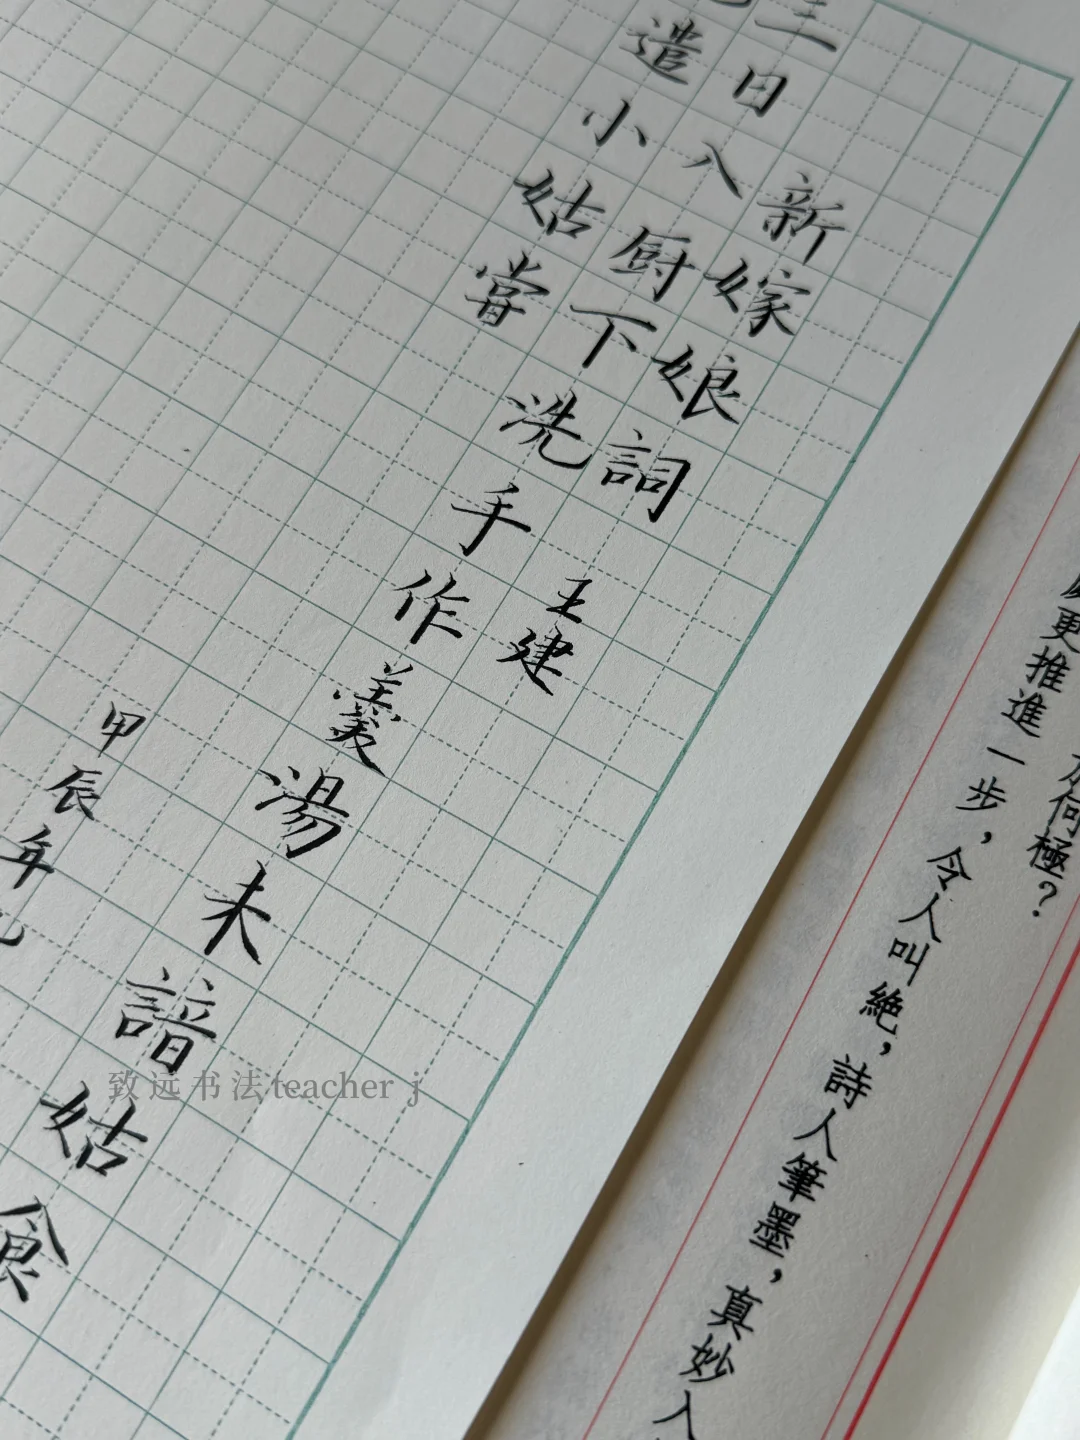 何極？
更推進一步，令人叫絶，詩人筆墨，真妙入
新嫁娘詞 王建
三日入厨下洗手作羹湯未諳姑食
遣小姑嘗
甲辰年
致远书法teacher j